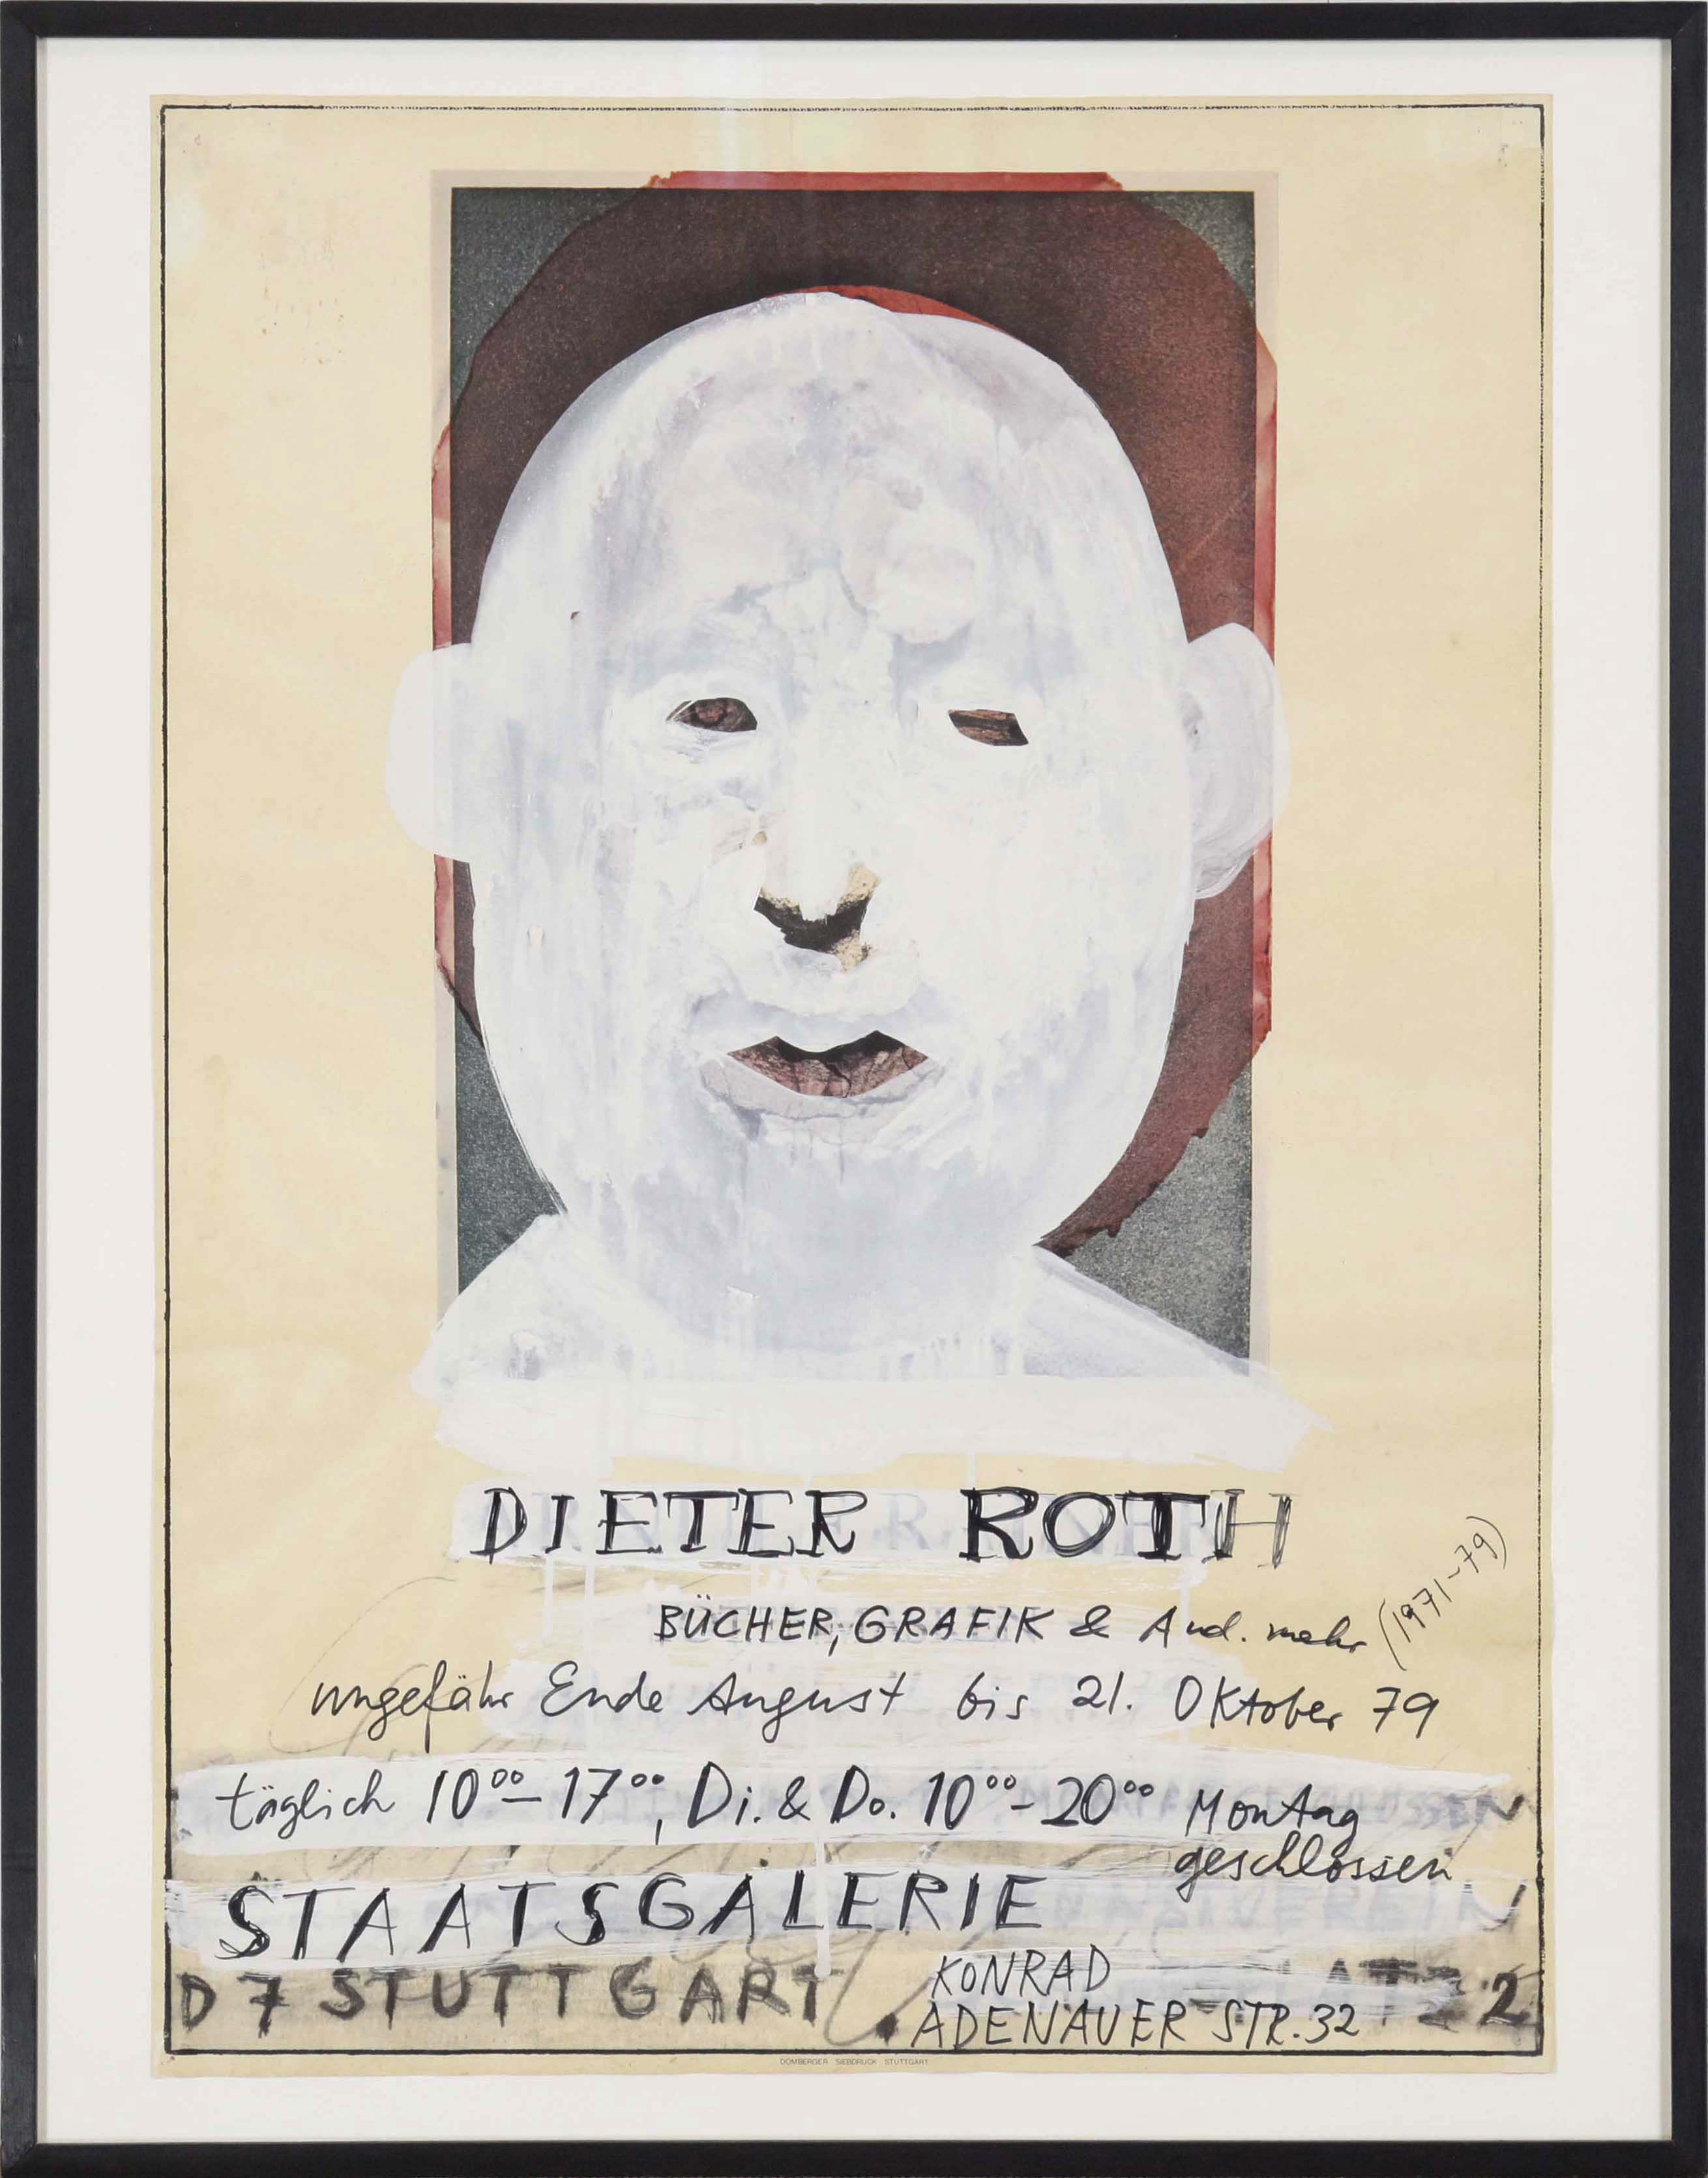 DIETER ROTH
BÜCHER, GRAFIK & And. mehr (1971-79)
ungefähr Ende August bis 21. Oktober 79
täglich 10⁰⁰-17⁰⁰, Di. & Do. 10⁰⁰-20⁰⁰ Montag
geschlossen
STAATSGALERIE
D 7 STUTTGART. KONRAD
ADENAUER STR. 32
2
DOMBERGER SIEBDRUCK STUTTGART